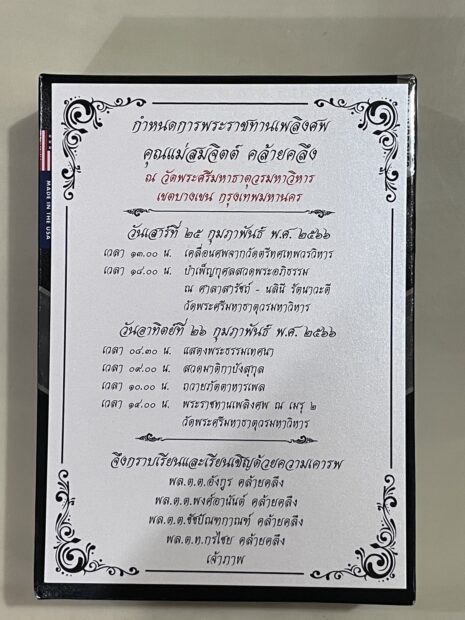 กำหนดการพระราชทานเพลิงศพ
คุณแม่สมจิตต์ คล้ายคลึง
ณ วัดพระศรีมหาธาตุวรมหาวิหาร
เขตบางเขน กรุงเทพมหานคร
วันเสาร์ที่ ๒๕ กุมภาพันธ์ พ.ศ. ๒๕๖๖
เวลา ๑๓.๐๐ น. เคลื่อนศพจากวัดตรีทศเทพวรวิหาร
เวลา ๑๘.๐๐ น. บำเพ็ญกุศลสวดพระอภิธรรม
ณ ศาลาสารัชถ์ - นลินี รัตนาวะดี
วัดพระศรีมหาธาตุวรมหาวิหาร
วันอาทิตย์ที่ ๒๖ กุมภาพันธ์ พ.ศ. ๒๕๖๖
เวลา ๐๘.๓๐ น. แสดงพระธรรมเทศนา
เวลา ๐๙.๐๐ น. สวดมาติกาบังสุกุล
เวลา ๑๐.๐๐ น. ถวายภัตตาหารเพล
เวลา ๑๔.๐๐ น. พระราชทานเพลิงศพ ณ เมรุ ๒
วัดพระศรีมหาธาตุวรมหาวิหาร
จึงกราบเรียนและเรียนเชิญด้วยความเคารพ
พล.ต.ต.อังกูร คล้ายคลึง
พล.ต.ต.พงศ์อานันต์ คล้ายคลึง
พล.ต.ต.ชัชปัณฑกาณฑ์ คล้ายคลึง
พล.ต.ท.กรไชย คล้ายคลึง
เจ้าภาพ
MADE IN THE USA